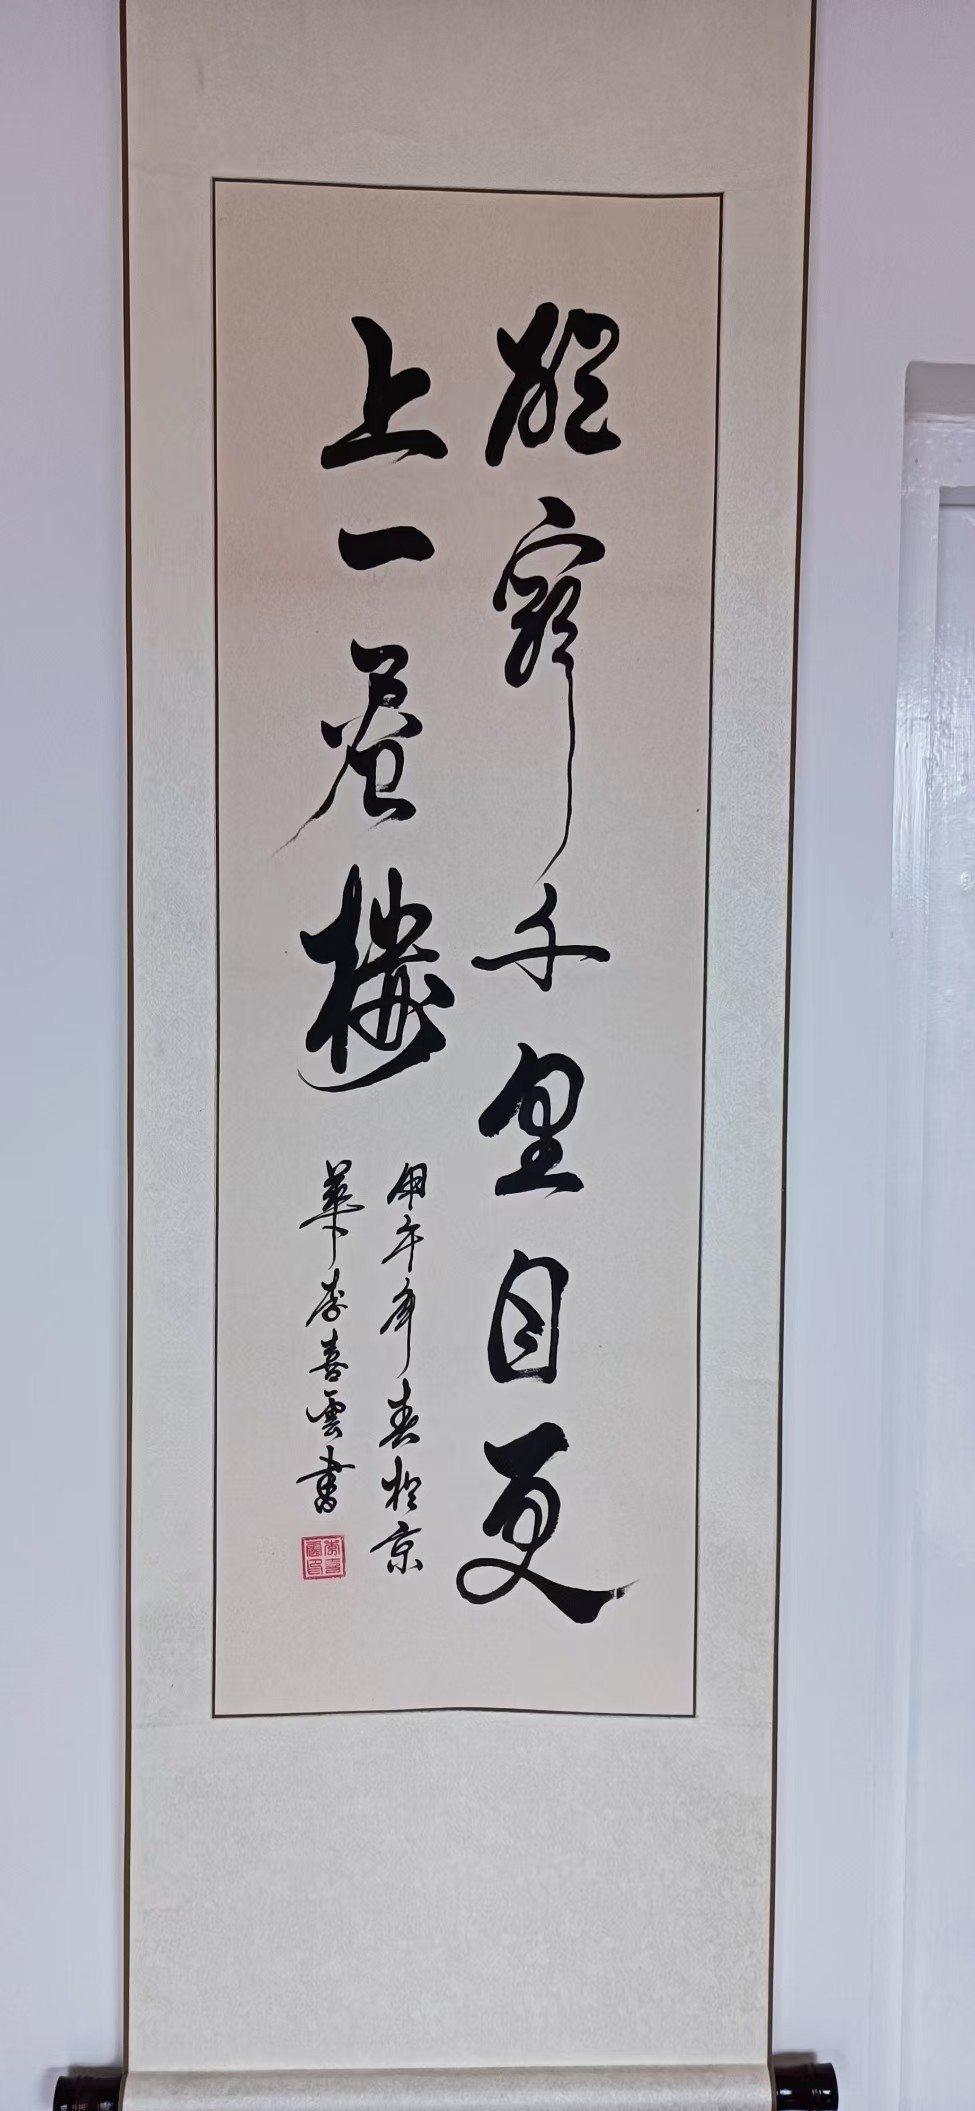 欲窮千里目更
上一層樓
甲午年春於京
華李喜雲書